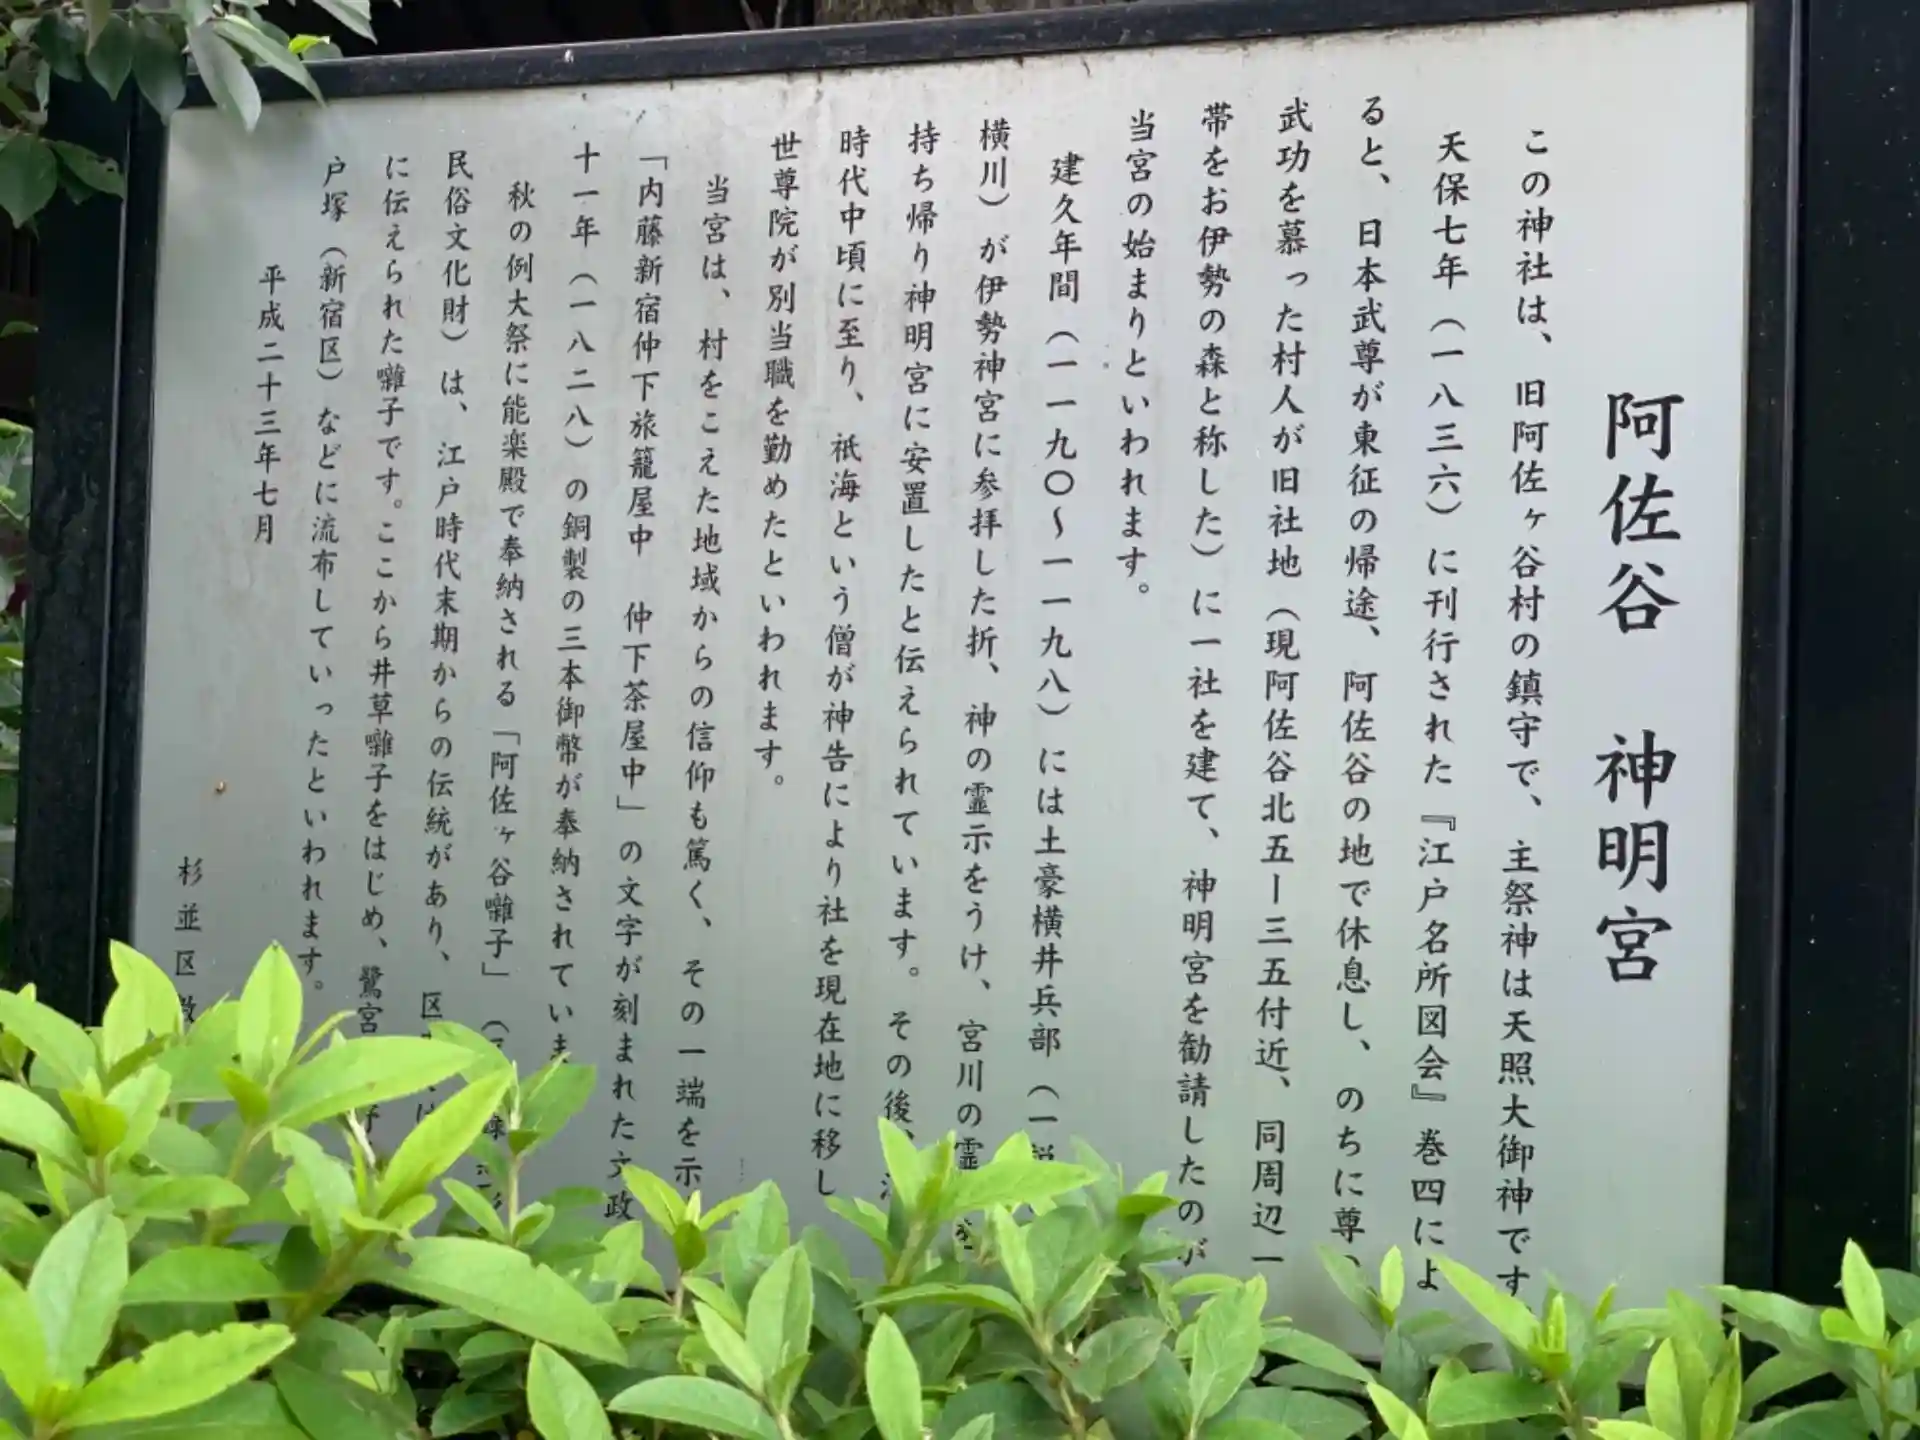 阿佐谷　神明宮
この神社は、旧阿佐ヶ谷村の鎮守で、主祭神は天照大御神です
天保七年（一八三六）に刊行された『江戸名所図会』巻四によ
ると、日本武尊が東征の帰途、阿佐谷の地で休息し、のちに尊、
武功を慕った村人が旧社地（現阿佐谷北五ー三五付近、同周辺一
帯をお伊勢の森と称した）に一社を建て、神明宮を勧請したのが
当宮の始まりといわれます。
建久年間（一一九〇～一一九八）には土豪横井兵部（一説
横川）が伊勢神宮に参拝した折、神の霊示をうけ、宮川の霊
持ち帰り神明宮に安置したと伝えられています。その後、
時代中頃に至り、祇海という僧が神告により社を現在地に移し
世尊院が別当職を勤めたといわれます。
当宮は、村をこえた地域からの信仰も篤く、その一端を示
「内藤新宿仲下旅籠屋中　仲下茶屋中」の文字が刻まれた文政
十一年（一八二八）の銅製の三本御幣が奉納されていま
秋の例大祭に能楽殿で奉納される「阿佐ヶ谷囃子」（
民俗文化財）は、江戸時代末期からの伝統があり、区
に伝えられた囃子です。ここから井草囃子をはじめ、鷺宮
戸塚（新宿区）などに流布していったといわれます。
平成二十三年七月
杉並区教